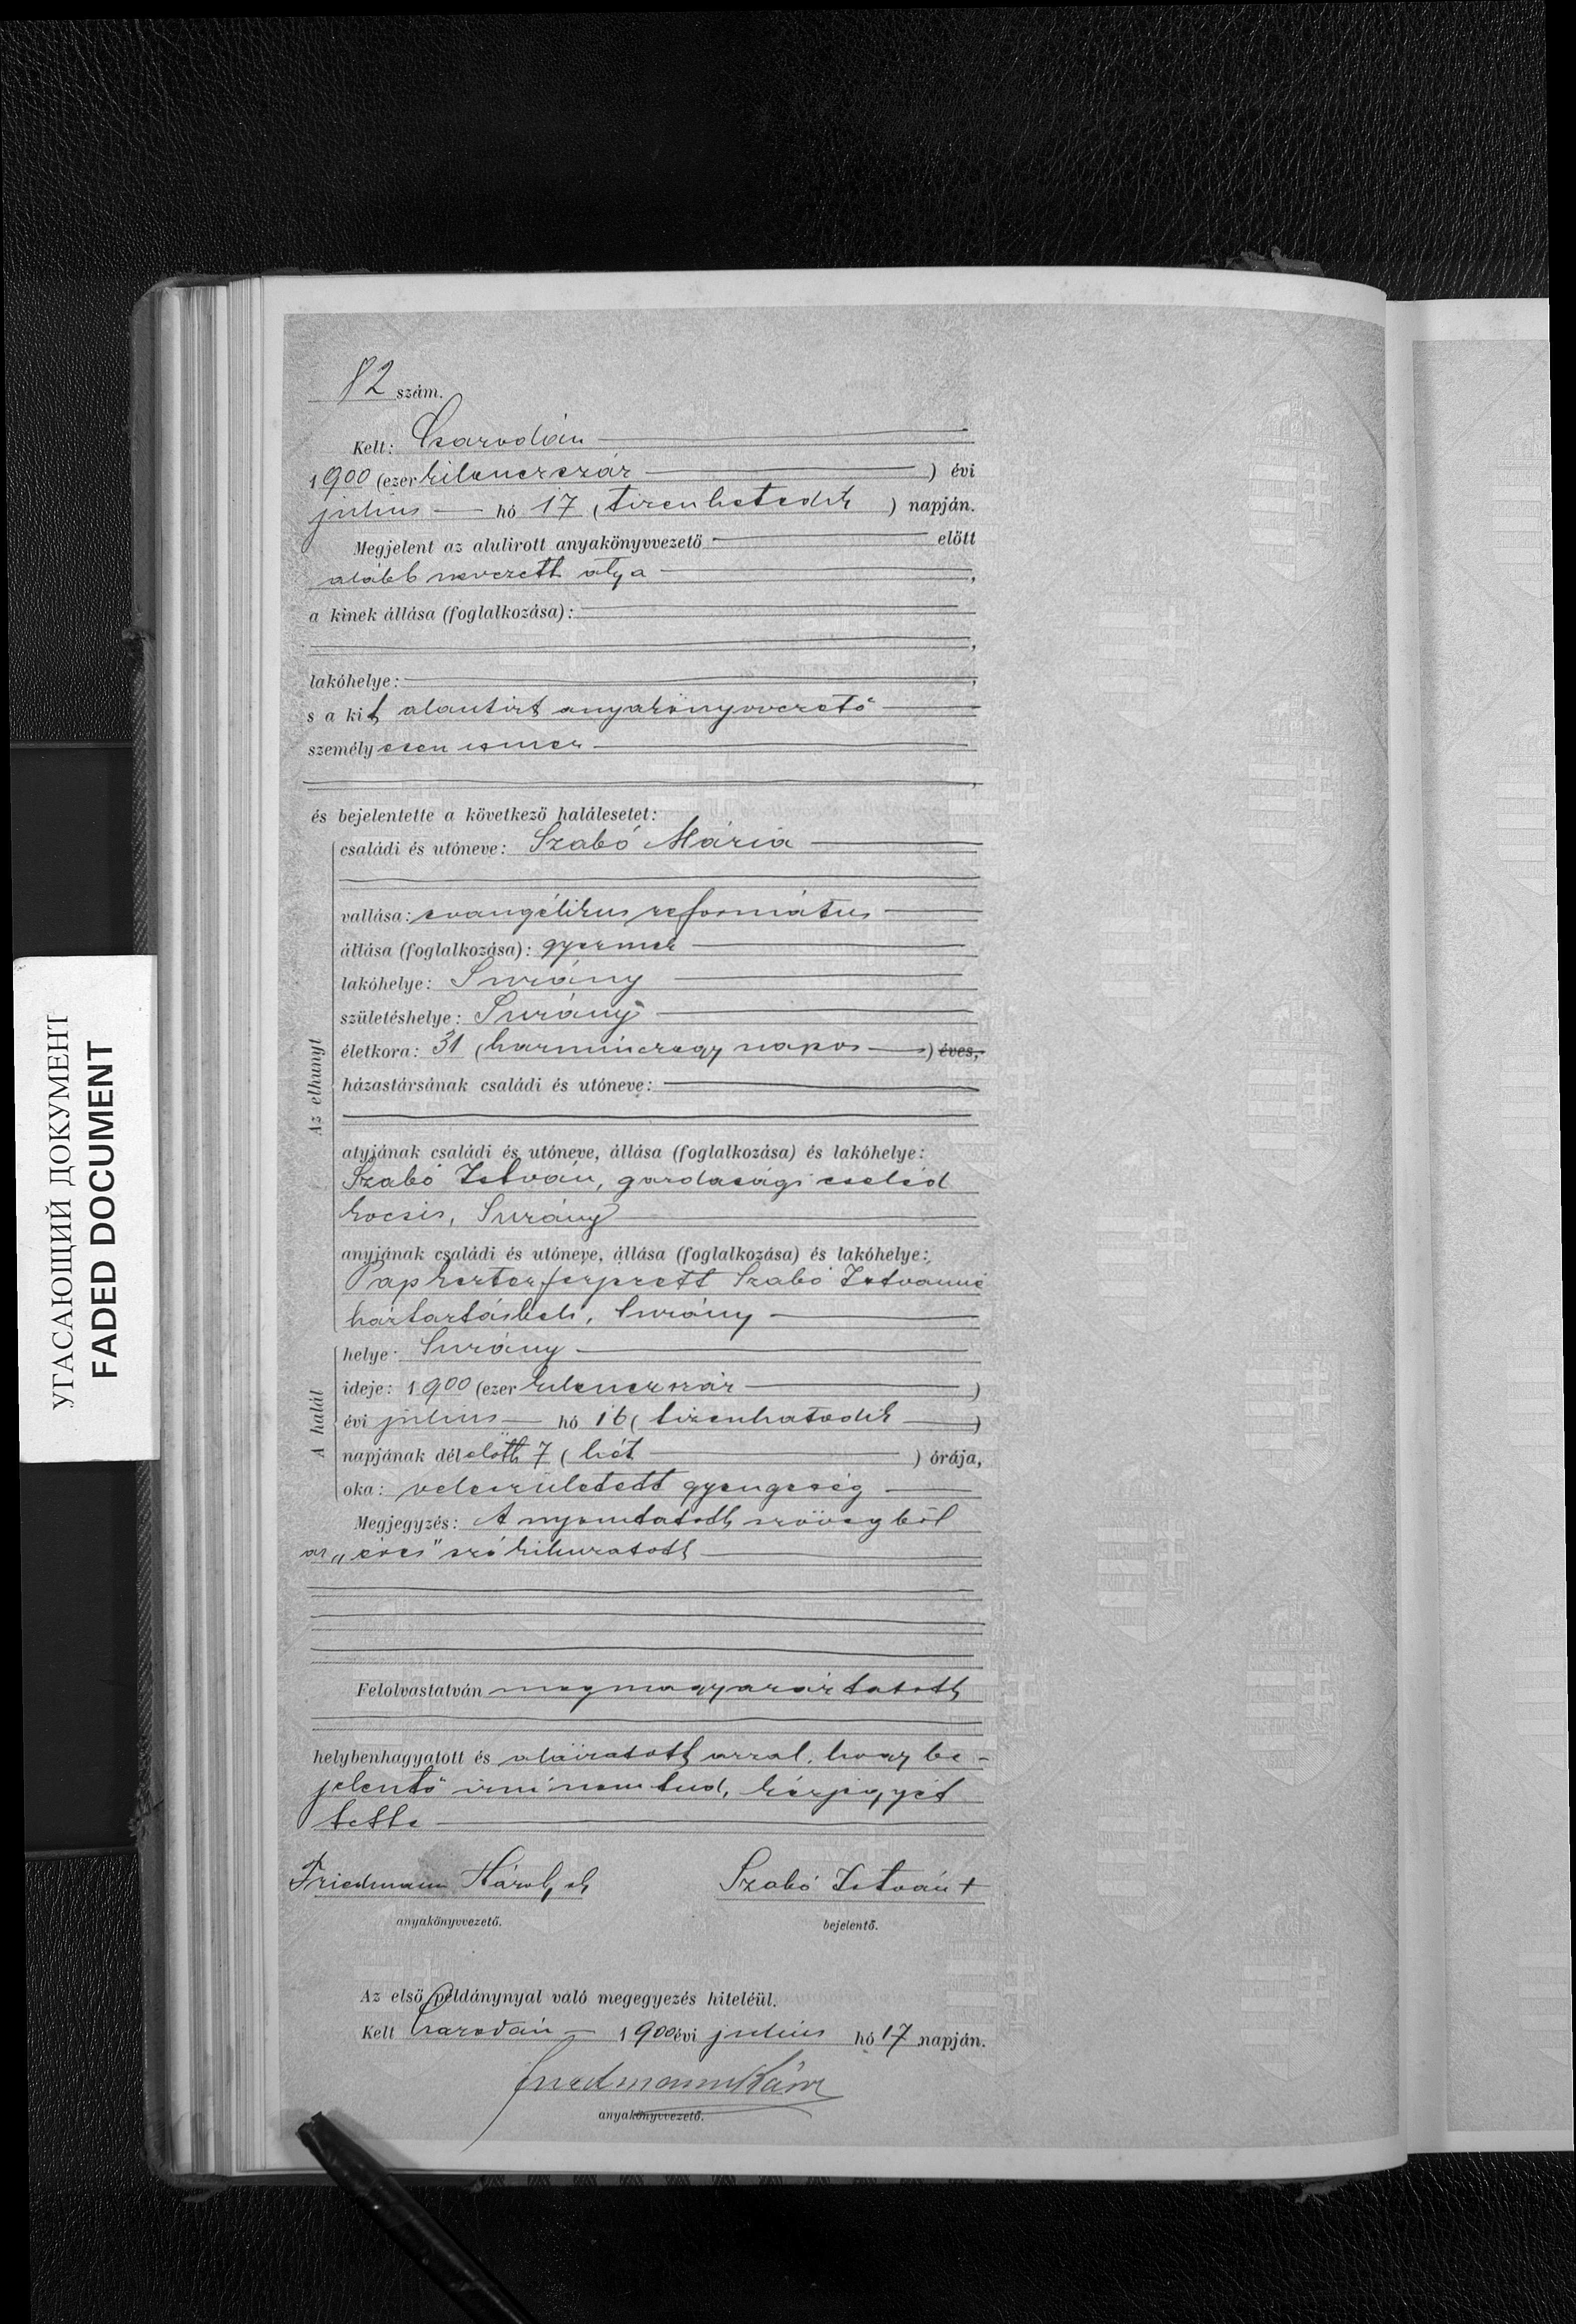 82 szám.
Kelt: Csarodán
1900 (ezer kilenczszáz) évi
julius hó 17 (tizenhetedik) napján.
Megjelent az alulirott anyakönyvvezető előtt
alább nevezett atya,
a kinek állása (foglalkozása):
,
lakóhelye:,
s a kit alantirt anyakönyvvezető
személyesen ismer
,
és bejelentette a következő halálesetet:
Az elhunyt
családi és utóneve: Szabó Mária
vallása: evangélikus református
állása (foglalkozása): gyermek
lakóhelye: Surány
születéshelye: Surány
életkora: 31 (harminczegy napos) éves,
házastársának családi és utóneve:
atyjának családi és utóneve, állása (foglalkozása) és lakóhelye:
Szabó István, gazdasági cseléd
kocsis, Surány
anyjának családi és utóneve, állása (foglalkozása) és lakóhelye:
Pap férjezett Szabó Istvánné
háztartásbeli, Surány
A halál
helye: Surány
ideje: 1900 (ezer kilenczszáz)
évi julius hó 16 (tizenhatodik)
napjának délelőtt 7 (hét) órája,
oka: veleszületett gyengeség
Megjegyzés: A nyomtatott szövegből
az „éves" szó kihuzatott
Felolvastatván megmagyaráztatott,
helybenhagyatott és aláiratott azzal, hogy be-
jelentő irni nem tud, kézjegyét
tette
Friedmann Károly sk
Szabó István +
anyakönyvvezető.
bejelentő.
Az első példánynyal való megegyezés hiteléül.
Kelt Csarodán 1900 évi julius hó 17 napján.
Friedmann Károly
anyakönyvvezető.
УГАСАЮЩИЙ ДОКУМЕНТ
FADED DOCUMENT